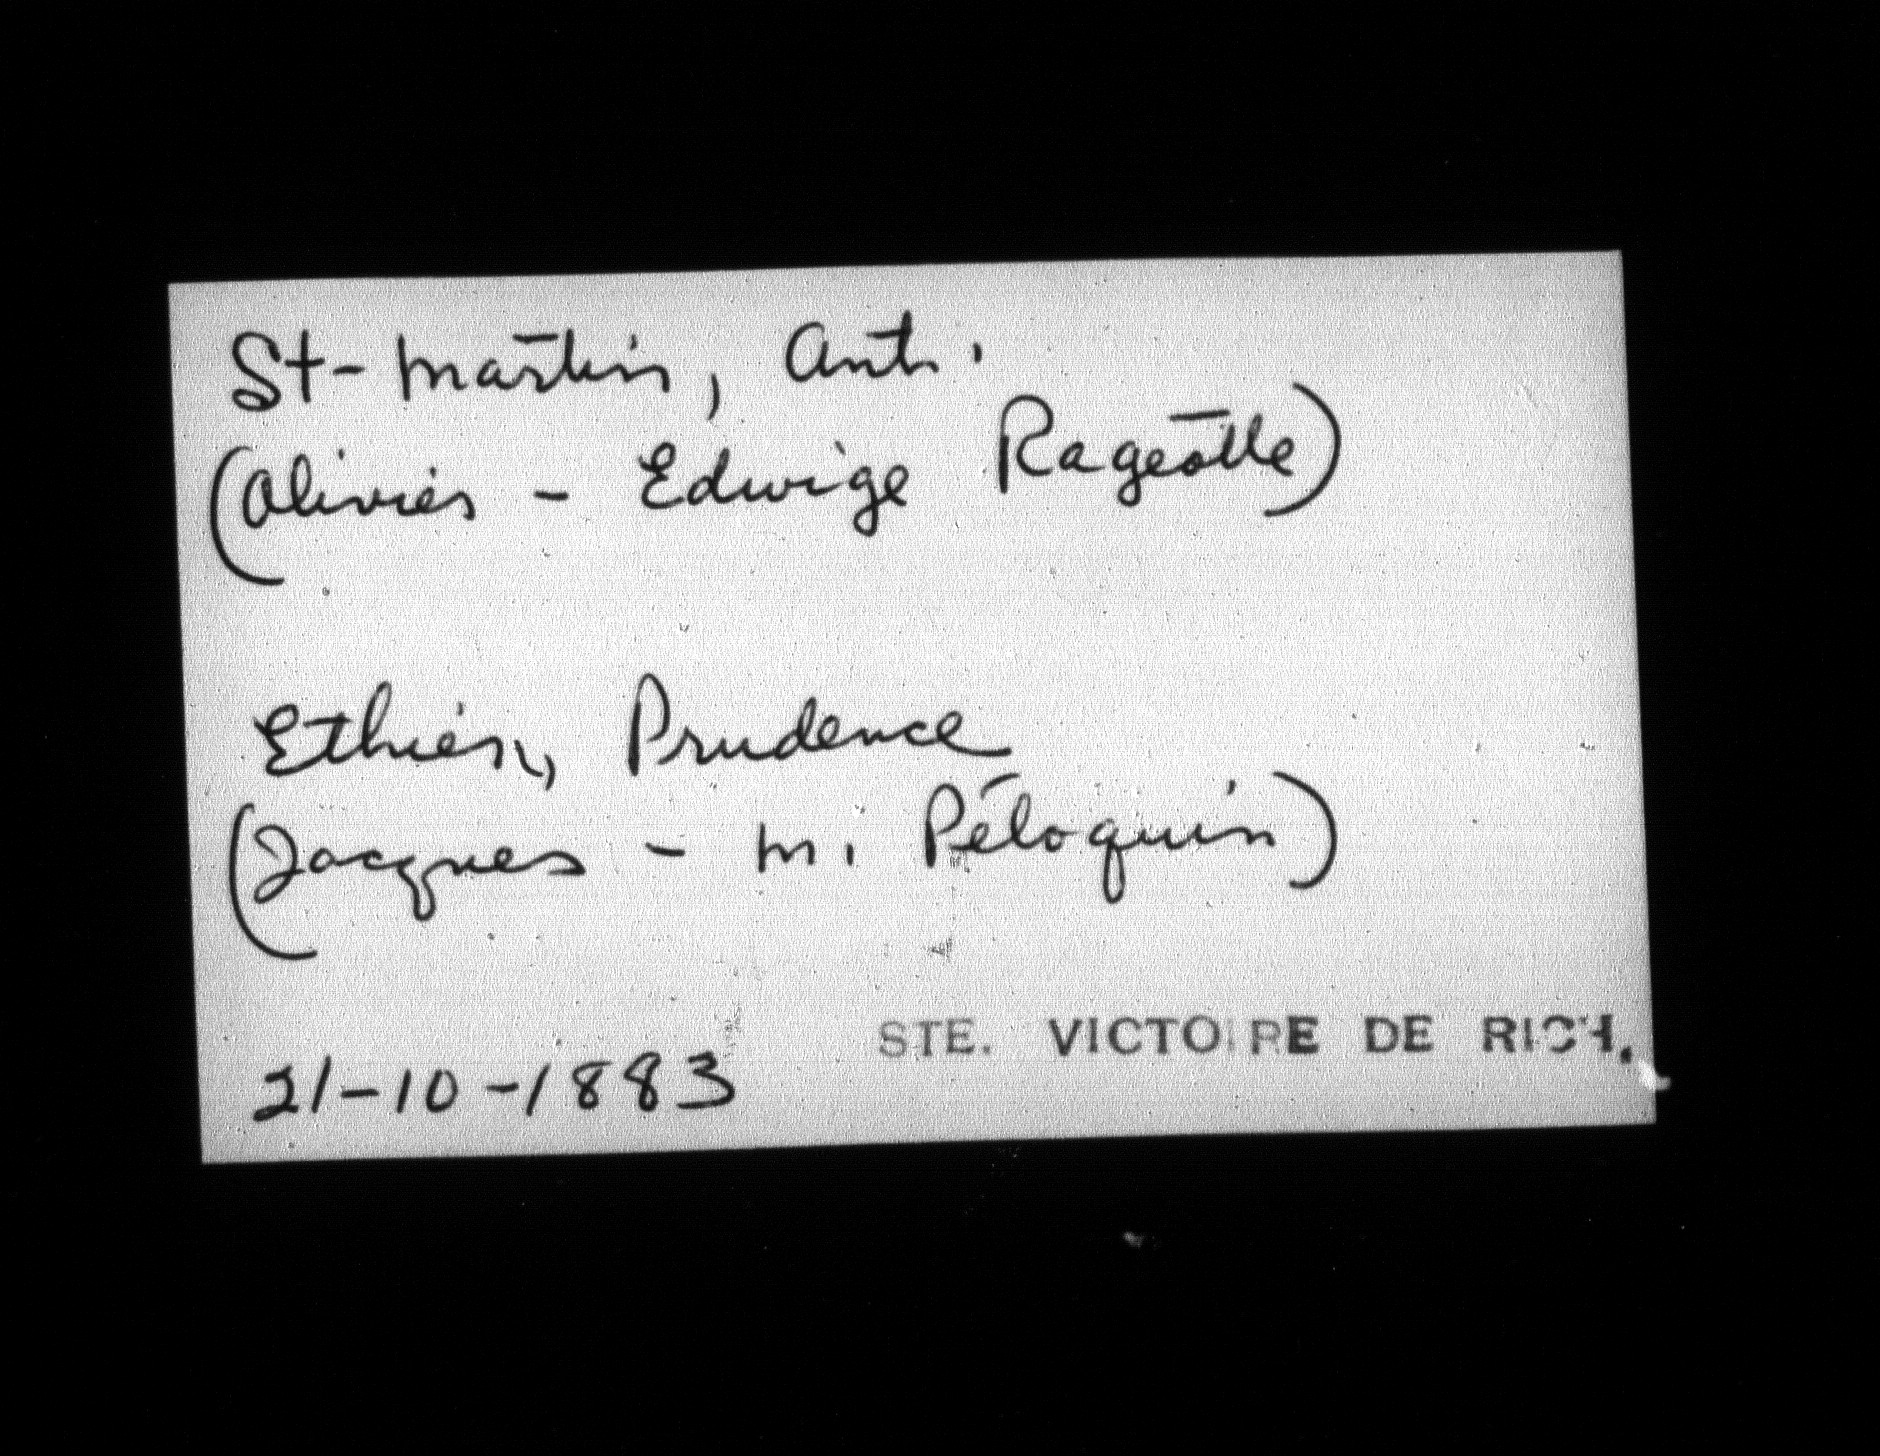 St-Martin, Ant.
(Olivier - Edwige Rageotte)
Ethier, Prudence
(Jacques - M. Péloquin)
21-10-1883
STE. VICTOIRE DE RICH.